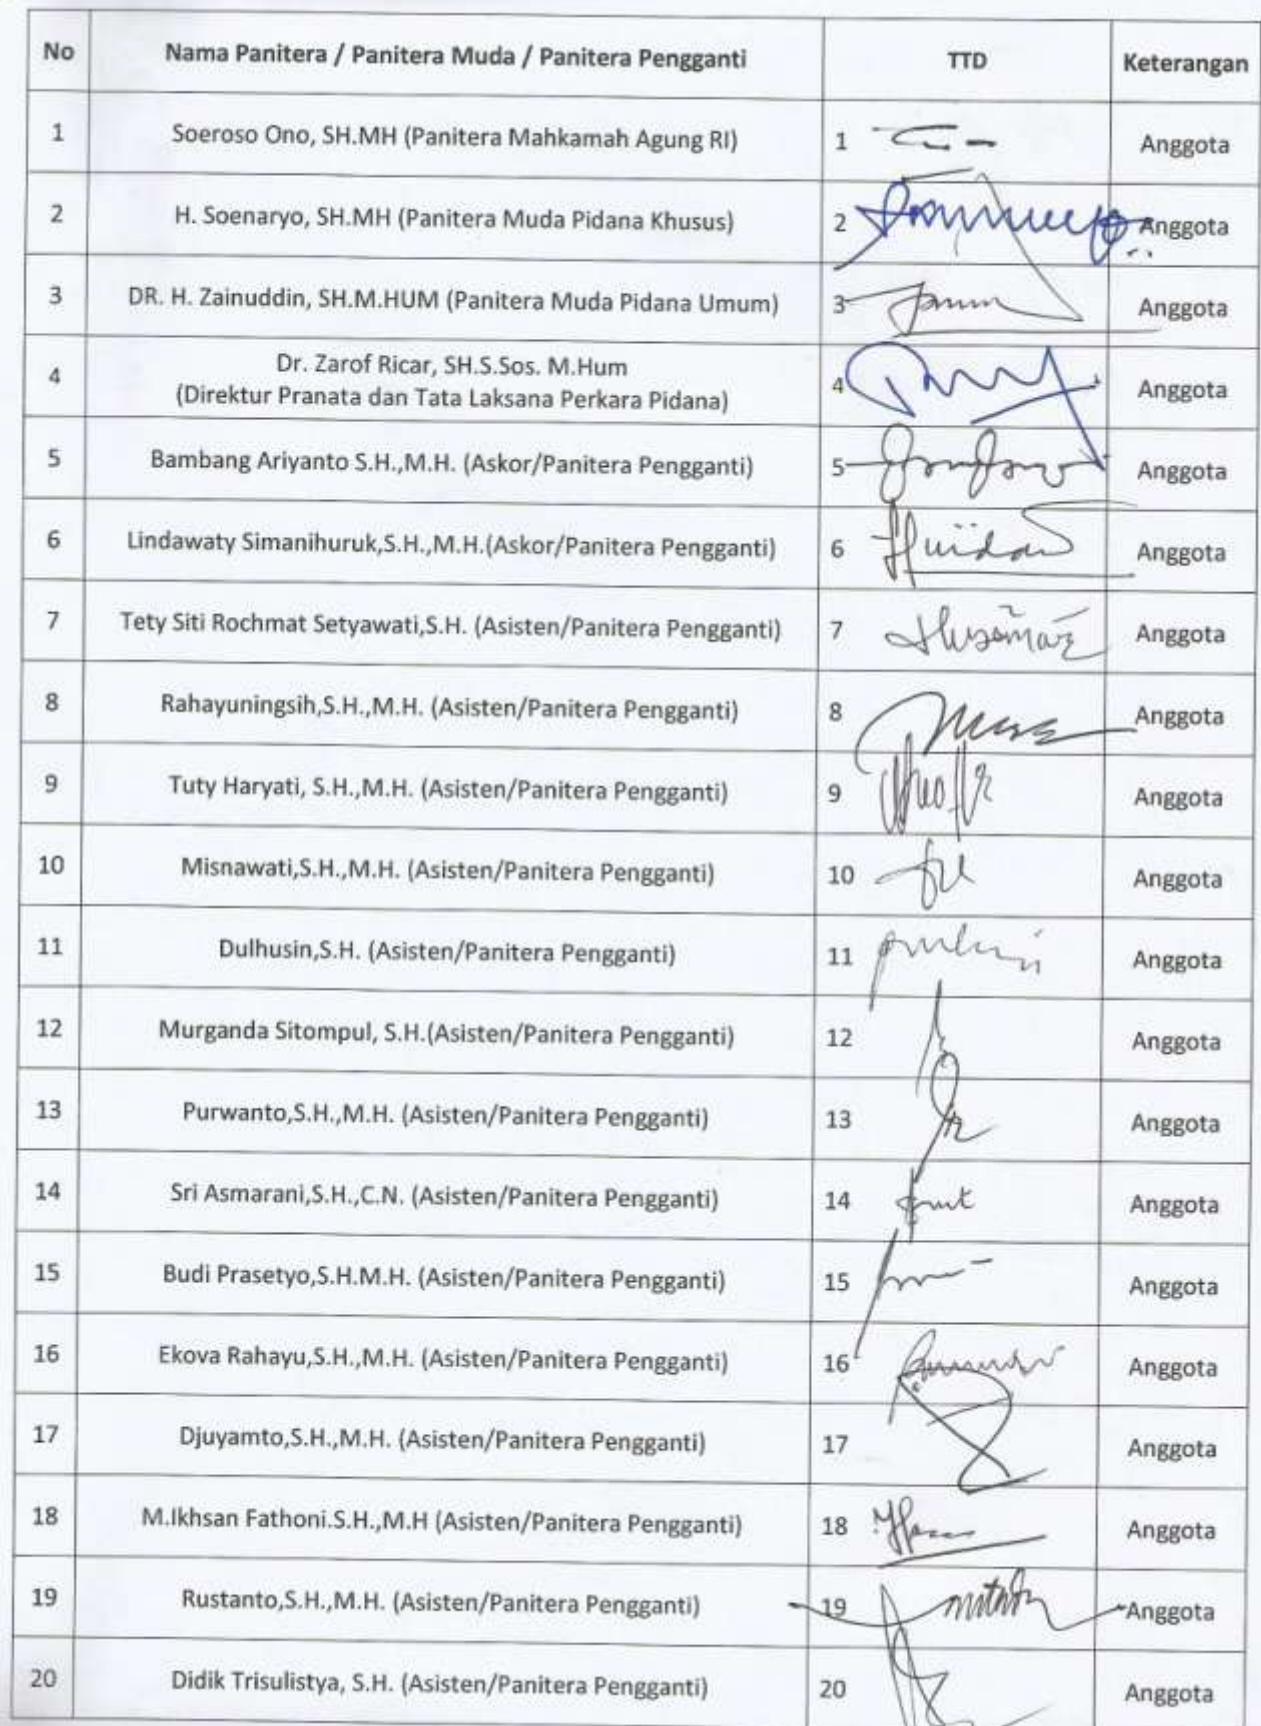 No Nama Panitera / Panitera Muda / Panitera Pengganti TTD Keterangan
1 Soeroso Ono, SH.MH (Panitera Mahkamah Agung RI) 1 Anggota
2 H. Soenaryo, SH.MH (Panitera Muda Pidana Khusus) 2 Anggota
3 DR. H. Zainuddin, SH.M.HUM (Panitera Muda Pidana Umum) 3 Anggota
Dr. Zarof Ricar, SH.S.Sos. M.Hum
4 (Direktur Pranata dan Tata Laksana Perkara Pidana) 4 Anggota
5 Bambang Ariyanto S.H.,M.H. (Askor/Panitera Pengganti) 5 Anggota
6 Lindawaty Simanihuruk,S.H.,M.H.(Askor/Panitera Pengganti) 6 Anggota
7 Tety Siti Rochmat Setyawati,S.H. (Asisten/Panitera Pengganti) 7 Anggota
8 Rahayuningsih,S.H.,M.H. (Asisten/Panitera Pengganti) 8 Anggota
9 Tuty Haryati, S.H.,M.H. (Asisten/Panitera Pengganti) 9 Anggota
10 Misnawati,S.H.,M.H. (Asisten/Panitera Pengganti) 10 Anggota
11 Dulhusin,S.H. (Asisten/Panitera Pengganti) 11 Anggota
12 Murganda Sitompul, S.H.(Asisten/Panitera Pengganti) 12 Anggota
13 Purwanto,S.H.,M.H. (Asisten/Panitera Pengganti) 13 Anggota
14 Sri Asmarani,S.H.,C.N. (Asisten/Panitera Pengganti) 14 Anggota
15 Budi Prasetyo,S.H.M.H. (Asisten/Panitera Pengganti) 15 Anggota
16 Ekova Rahayu,S.H.,M.H. (Asisten/Panitera Pengganti) 16 Anggota
17 Djuyamto,S.H.,M.H. (Asisten/Panitera Pengganti) 17 Anggota
18 M.Ikhsan Fathoni.S.H.,M.H (Asisten/Panitera Pengganti) 18 Anggota
19 Rustanto,S.H.,M.H. (Asisten/Panitera Pengganti) 19 Anggota
20 Didik Trisulistya, S.H. (Asisten/Panitera Pengganti) 20 Anggota